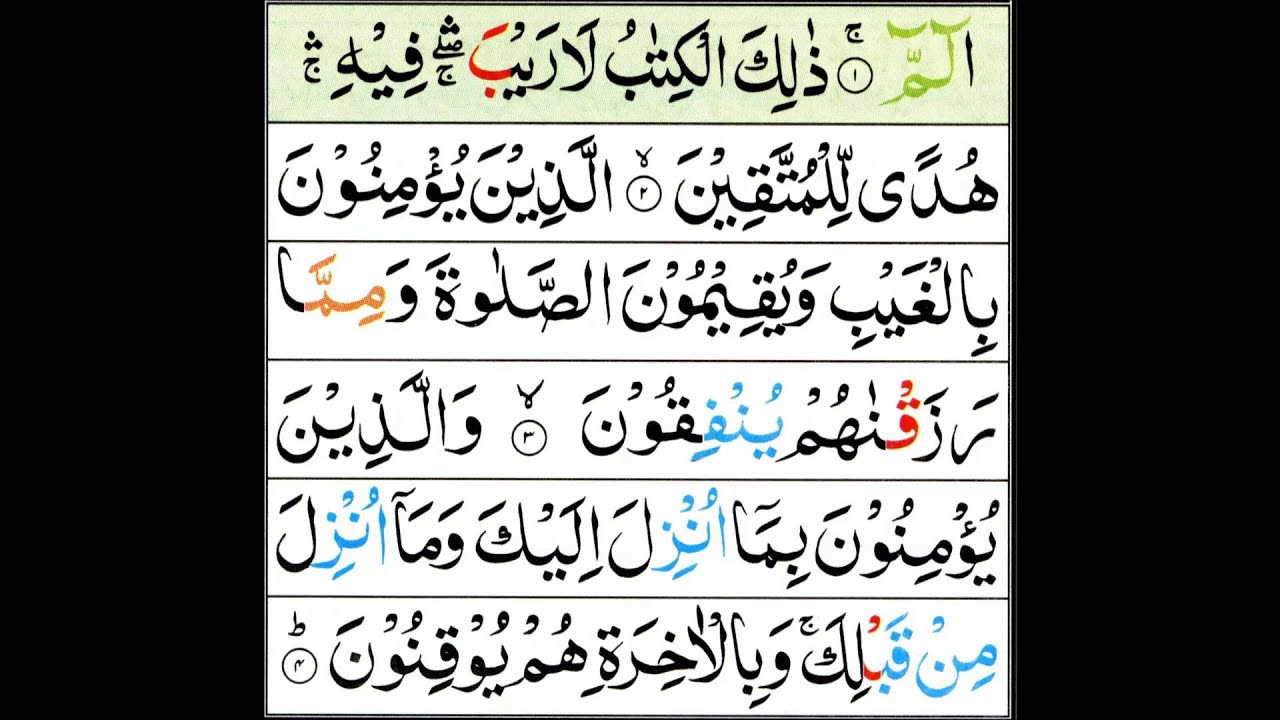 الٓمّٓ ۚ ﴿۱﴾ ذٰلِكَ الْكِتٰبُ لَا رَيْبَ ۛۖۚ فِيْهِ ۛۚ
هُدًى لِّلْمُتَّقِيْنَ ۙ ﴿۲﴾ الَّذِيْنَ يُؤْمِنُوْنَ
بِالْغَيْبِ وَيُقِيْمُوْنَ الصَّلٰوةَ وَمِمَّا
رَزَقْنٰهُمْ يُنْفِقُوْنَ ۙ ﴿۳﴾ وَالَّذِيْنَ
يُؤْمِنُوْنَ بِمَاۤ اُنْزِلَ اِلَيْكَ وَمَاۤ اُنْزِلَ
مِنْ قَبْلِكَ ۚ وَبِالْاٰخِرَةِ هُمْ يُوْقِنُوْنَ ؕ ﴿۴﴾